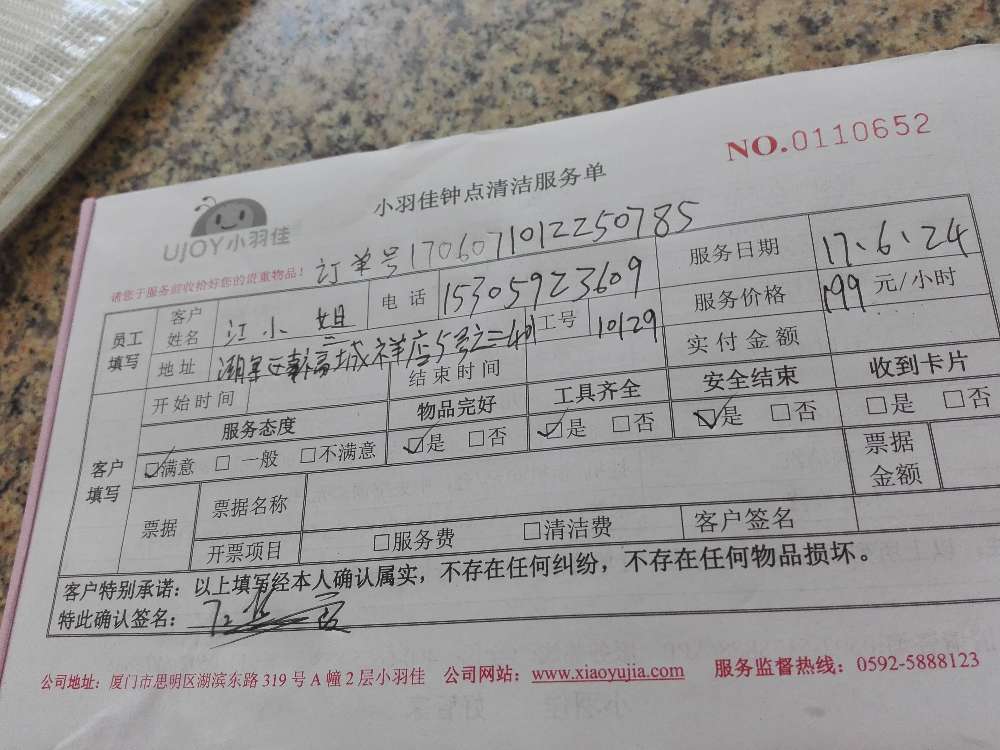 NO.0110652
小羽佳钟点清洁服务单
UJOY小羽佳
请您于服务前收拾好您的贵重物品！ 订单号170607101225 0785
员工填写 客户姓名 江小姐 电话 15305923609 服务日期 17.6.24
地址 湖里区 城祥店5号之二401 工号 10129 服务价格 199 元/小时
客户填写 开始时间 结束时间 实付金额
服务态度 物品完好 工具齐全 安全结束 收到卡片
☑满意 □一般 □不满意 ☑是 □否 ☑是 □否 ☑是 □否 □是 □否
票据 票据名称 票据金额
开票项目 □服务费 □清洁费 客户签名
客户特别承诺：以上填写经本人确认属实，不存在任何纠纷，不存在任何物品损坏。
特此确认签名：
公司地址：厦门市思明区湖滨东路 319 号 A 幢 2 层小羽佳 公司网站：www.xiaoyujia.com 服务监督热线：0592-5888123